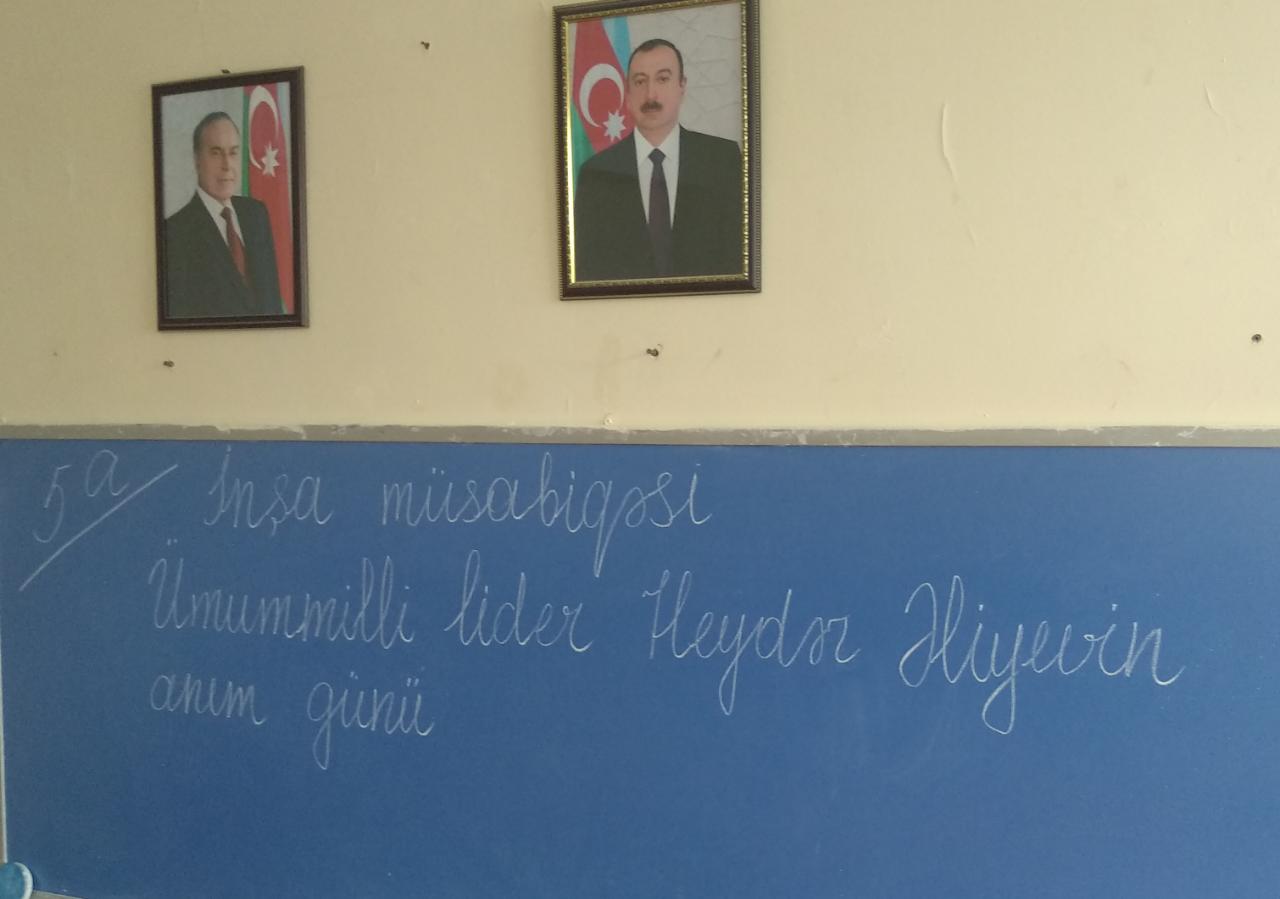 5a/ İnşa müsabiqəsi
Ümummilli lider Heydər Əliyevin
anım günü